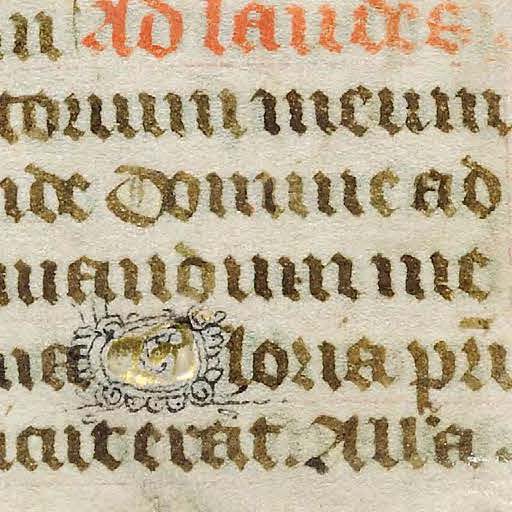 n Ad laudes
torium meum
nde Domine ad
uandum me
na Gloria pr̄i
icut erat. All'a.